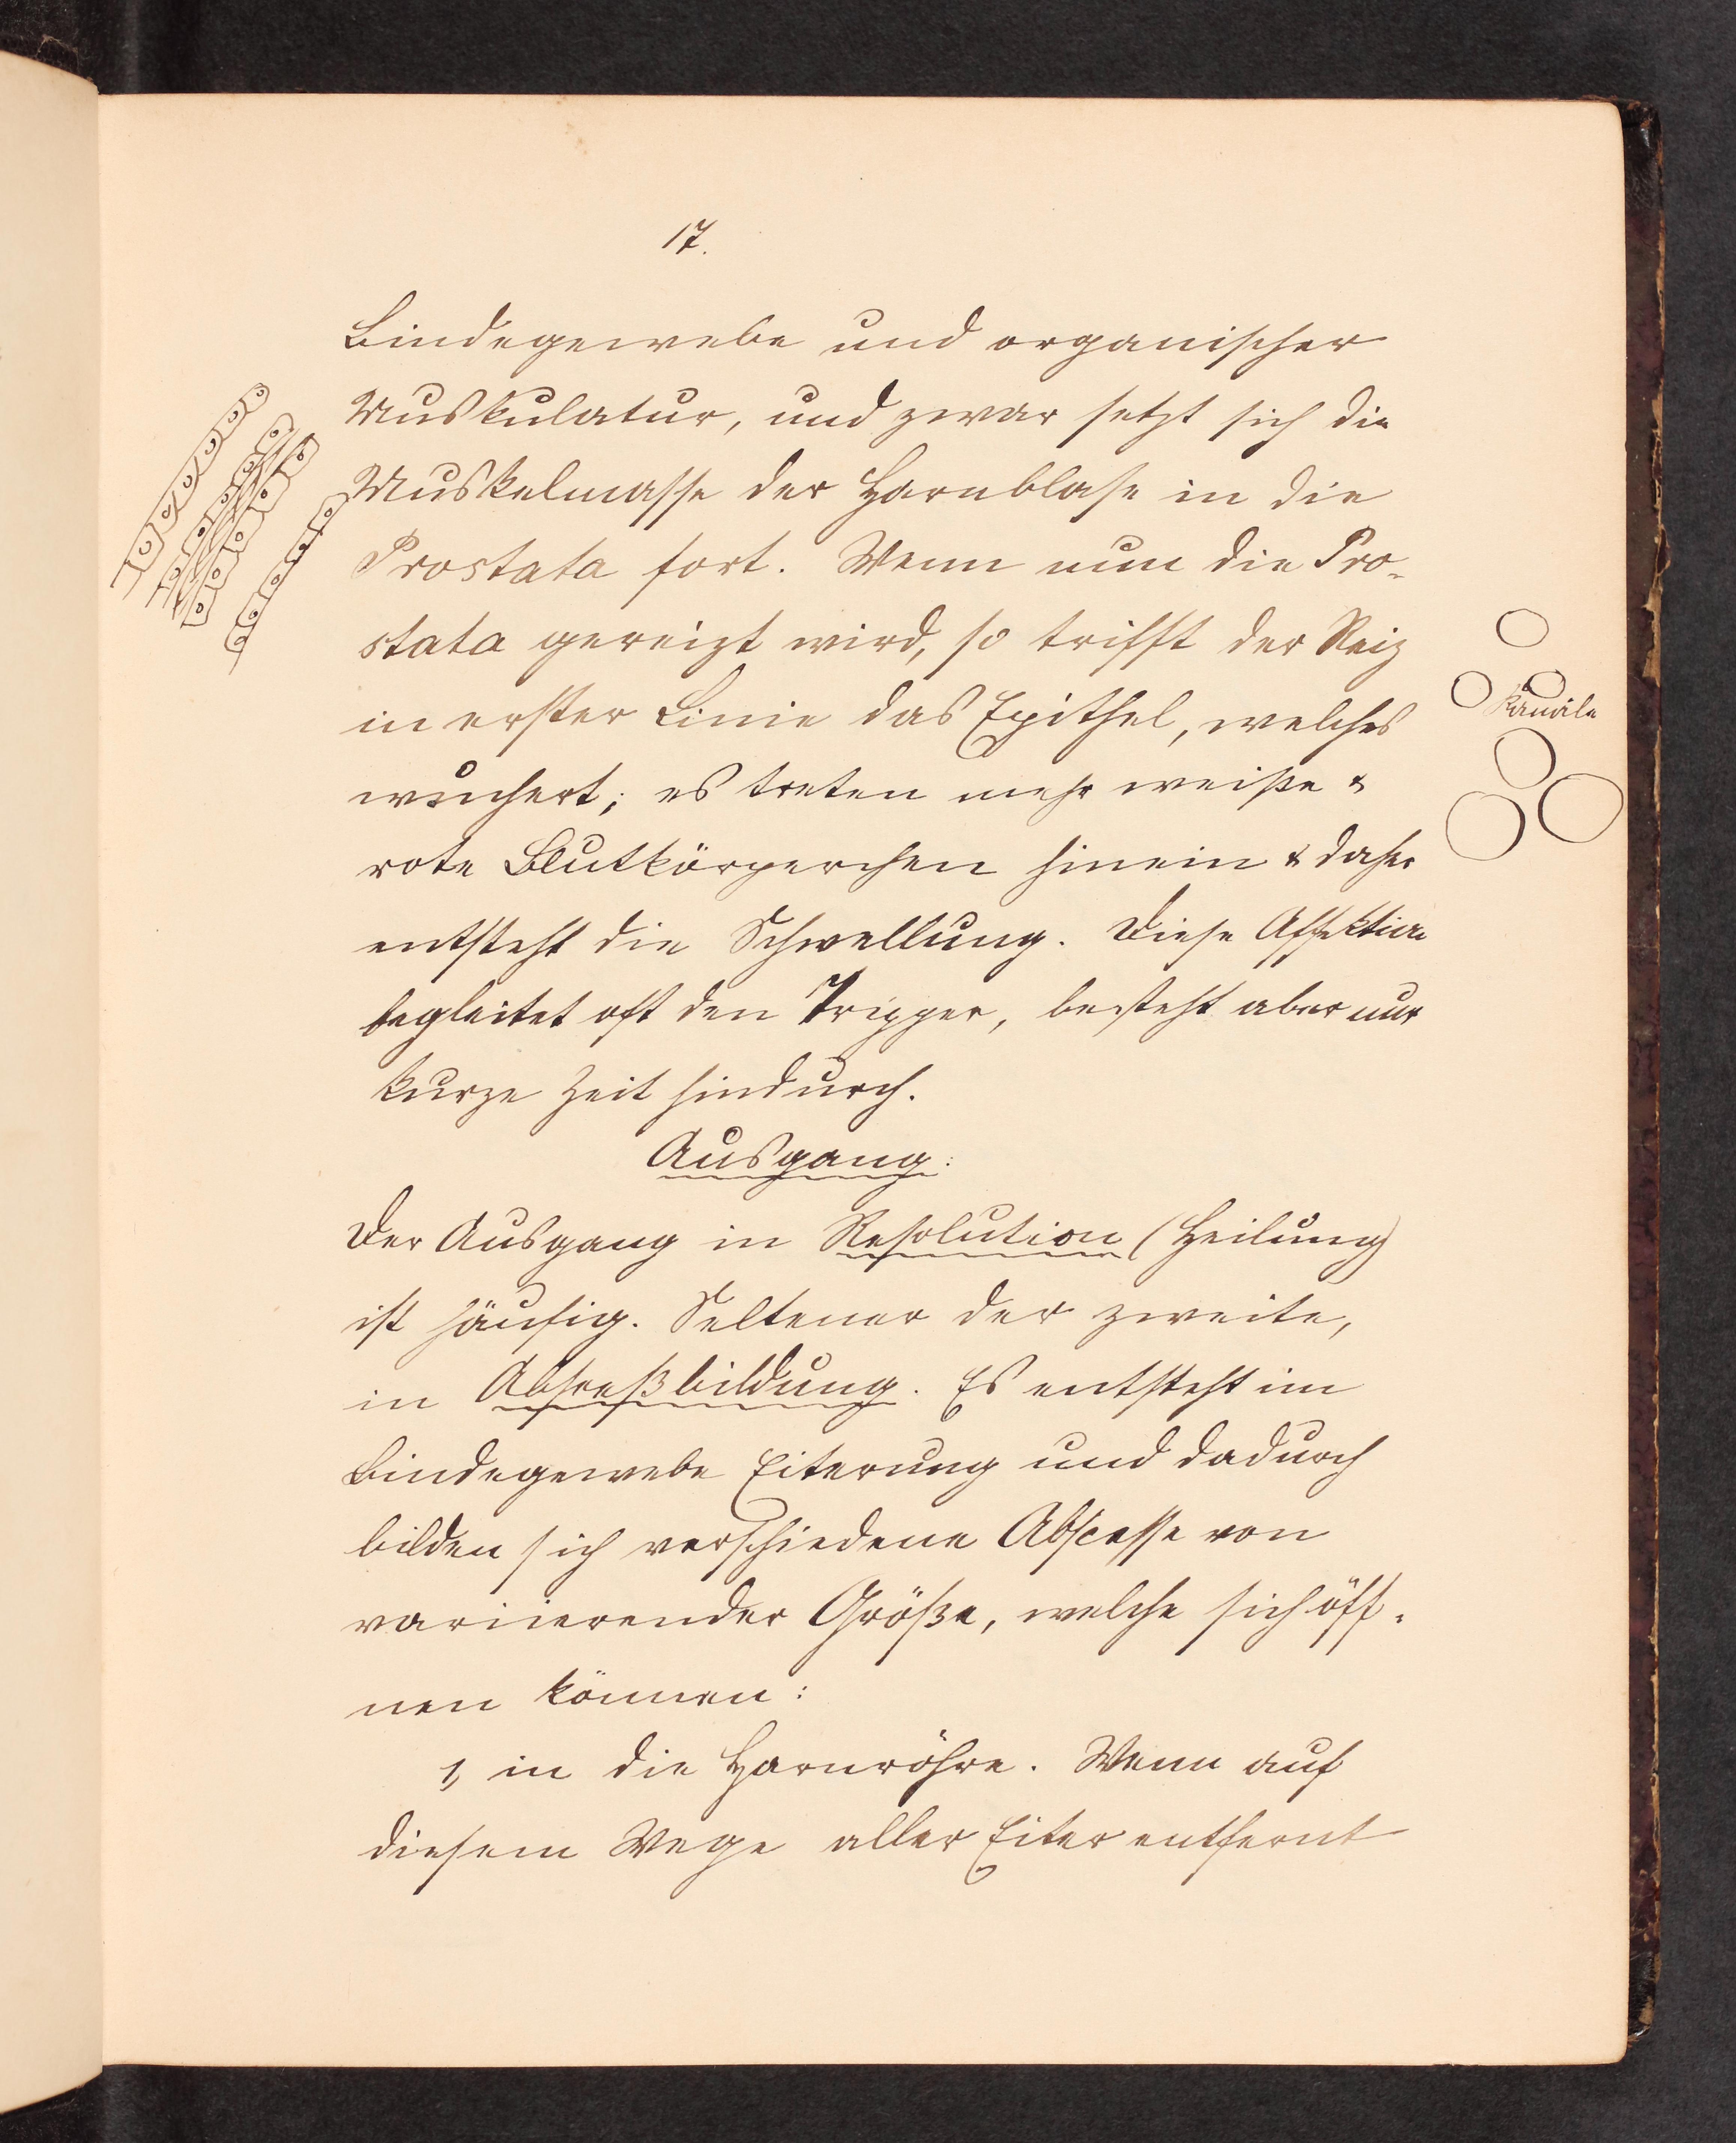 17.
Bindegewebe und organischer
Muskulatur, und zwar setzt sich die
Muskelmasse der Harnblase in die
Prostata fort. Wenn nun die Pro-
stata gereizt wird, so trifft der Reiz
in erster Linie das Epithel, welches
Kanäle
wuchert; es treten mehr weiße &
rote Blutkörperchen hinein & daher
entsteht die Schwellung. Diese Affektion
begleitet oft den Tripper, besteht aber nur
kurze Zeit hindurch.
Ausgang:
Der Ausgang in Resolution (Heilung)
ist häufig. Seltener der zweite,
in Absceßbildung. Es entsteht im
Bindegewebe Eiterung und dadurch
bilden sich verschiedene Abscesse von
variierender Größe, welche sich öff-
nen können:
1, in die Harnröhre. Wenn auf
diesem Wege aller Eiter entfernt